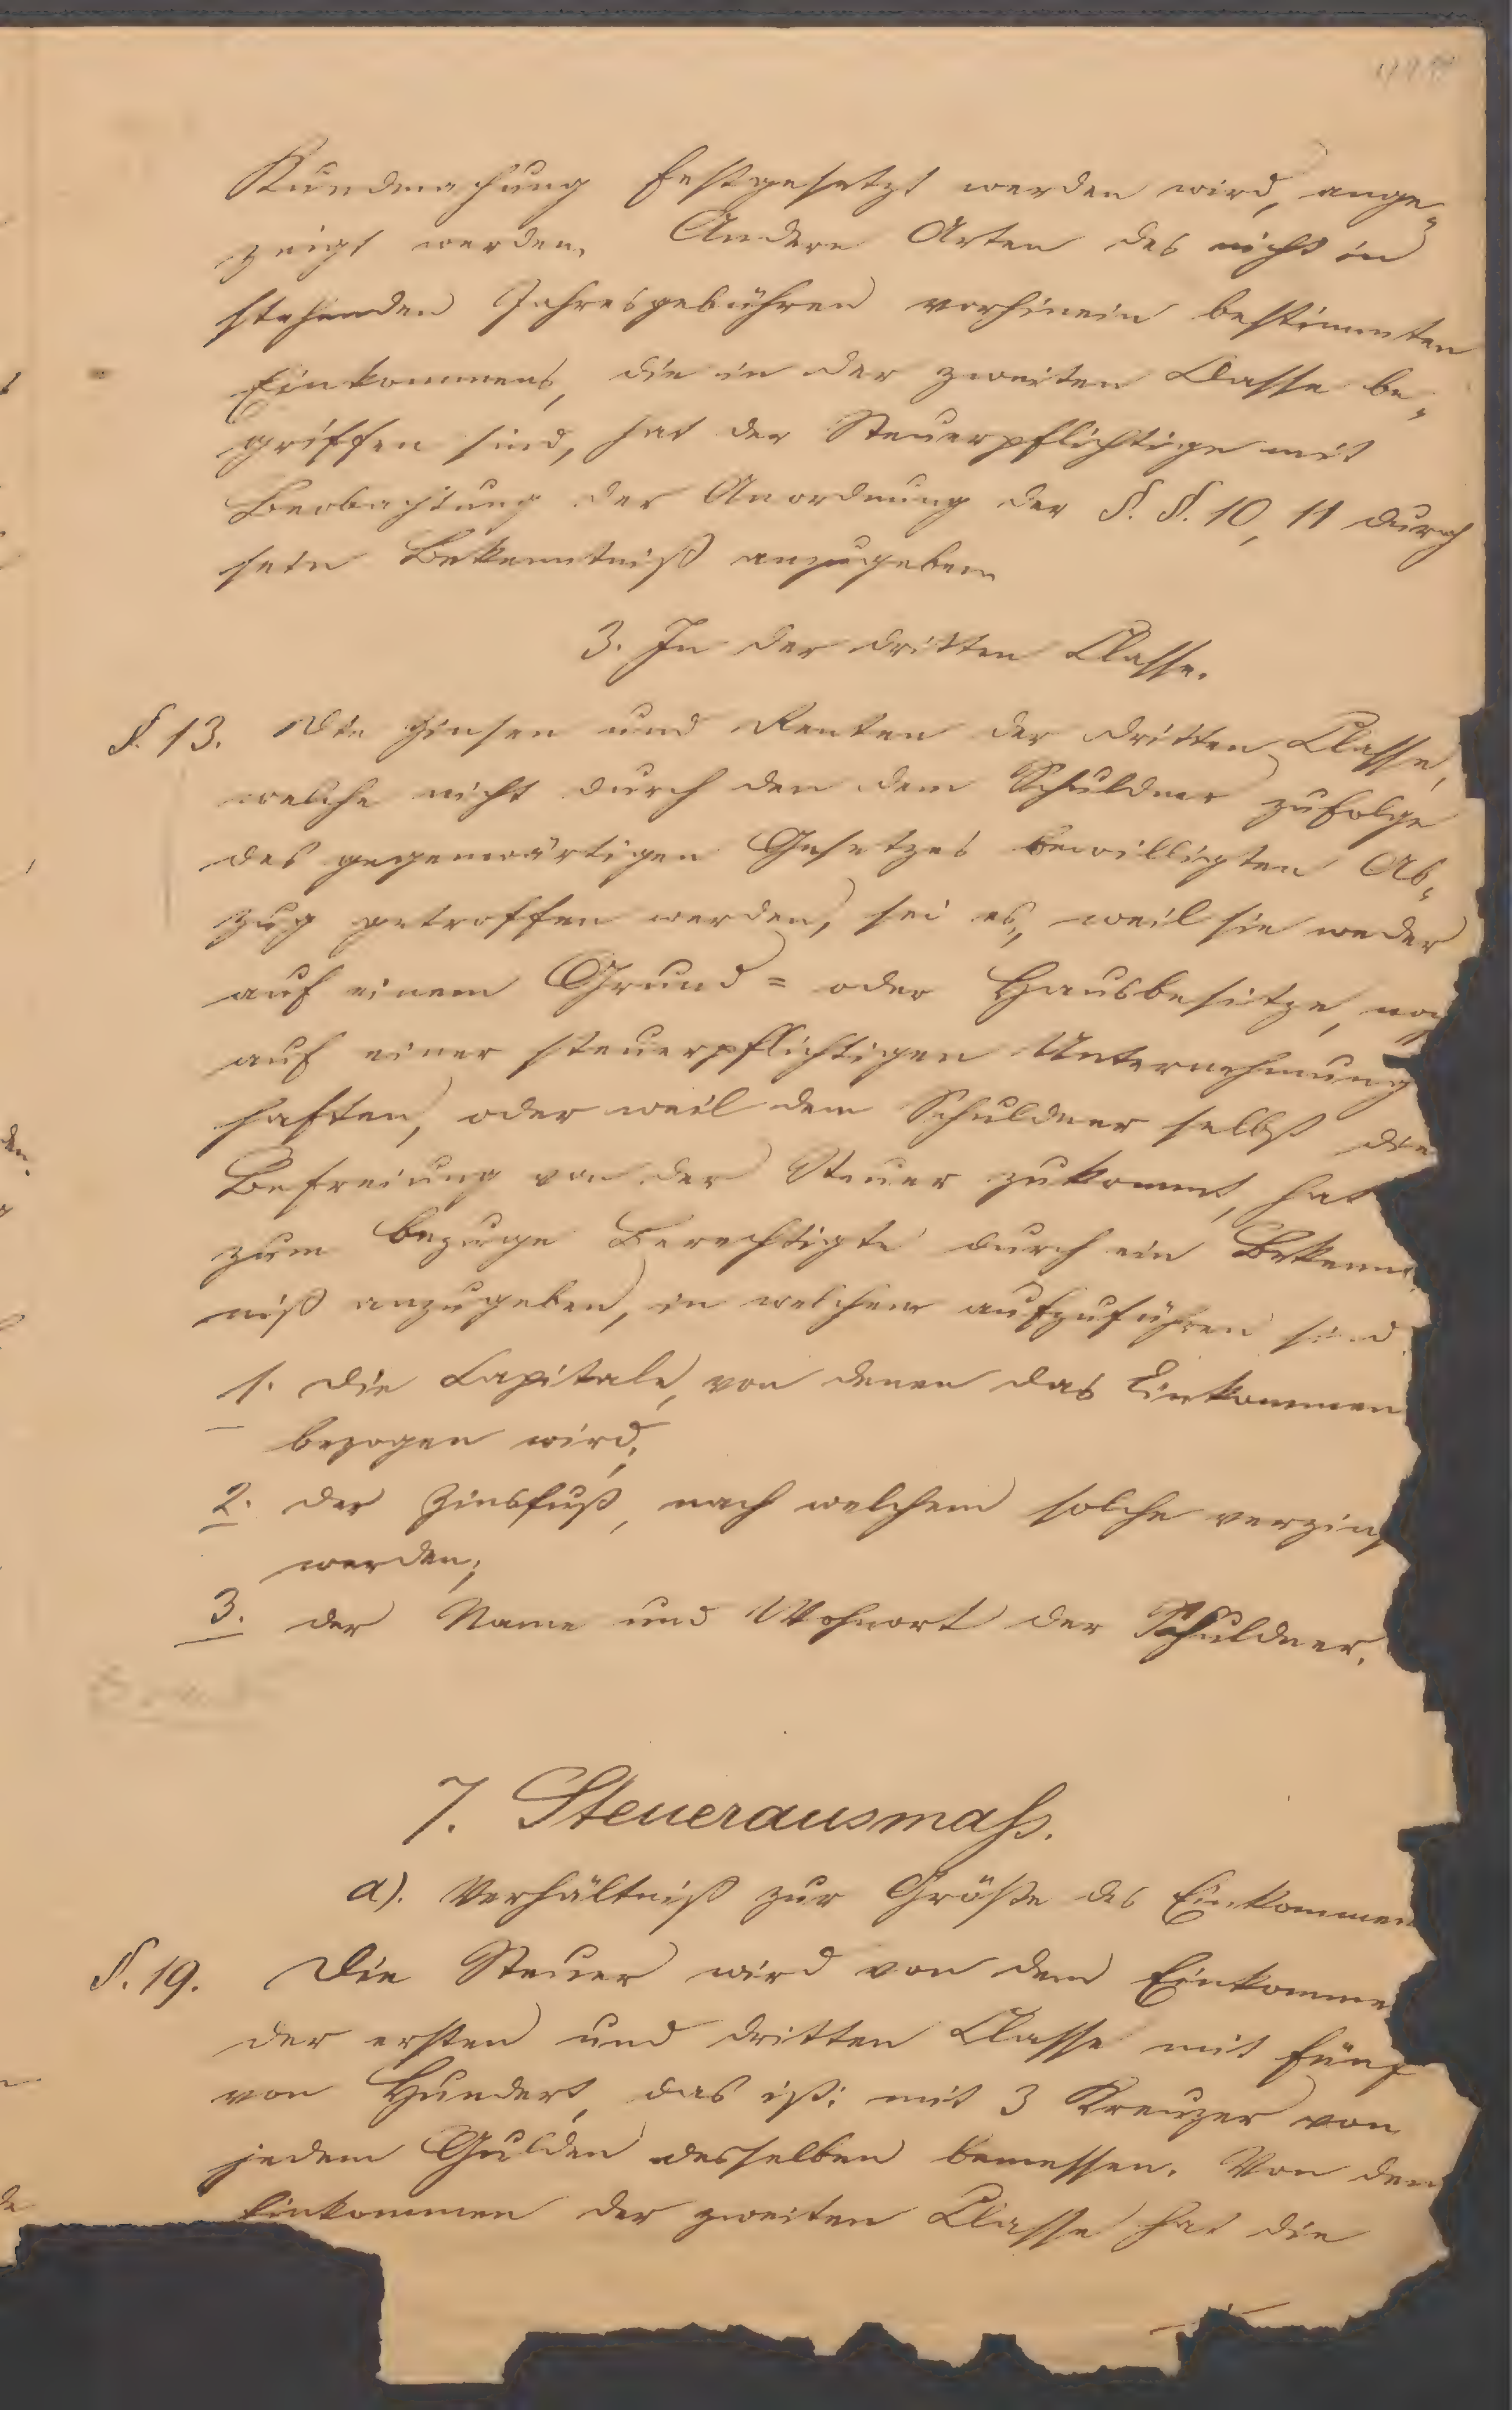 Kundmachung festgesetzt werden wird, ange-
zeigt werden. Andere Arten des nicht in
stehenden Jahresgebühren vorhinein bestimmten
Einkommens, die in der zweiten Classe be-
griffen sind, hat der Steuerpflichtige mit
Beobachtung der Anordnung der §. §. 10, 11 durch
sein Bekenntniß anzugeben.
3. In der dritten Classe.
§. 13. Die Zinsen und Renten der dritten Classe,
welche nicht durch den dem Schuldner zufolge
des gegenwärtigen Gesetzes bewilligten Ab-
zug getroffen werden, sei es, weil sie weder
auf einem Grund= oder Hausbesitze, noch
auf einer steuerpflichtigen Unternehmung
haften, oder weil dem Schuldner selbst die
Befreiung von der Steuer zukommt, hat
zum Bezuge Berechtigte durch ein Bekennt
niß anzugeben, in welchem aufzuführen sind
1. die Capitale, von denen das Einkommen
bezogen wird;
2. der Zinsfuß, nach welchem solche verzins
werden;
3. der Name und Wohnort der Schuldner.
7. Steuerausmaß.
a). Verhältniß zur Größe des Einkommen
§. 19. Die Steuer wird von dem Einkomme
der ersten und dritten Classe mit fünf
von Hundert, das ist: mit 3 Kreuzer von
jedem Gulden desselben bemessen. Von dem
Einkommen der zweiten Classe hat die